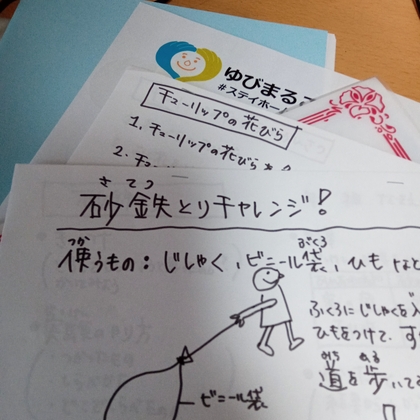 ゆびまるこ
#ステイホー
チューリップの花びら
1. チューリップの花びら
2. チュー
さてつ
砂鉄とりチャレンジ!
つか ぶくろ
使うもの:じしゃく、ビニール袋、ひもなど
ふくろにじしゃくを入
ひもをつけて、す
みち ある
道を歩いて
ビニール袋